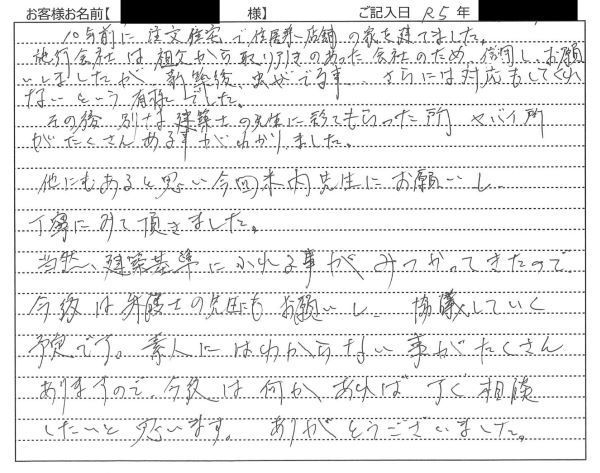 お客様お名前【　　　　様】　ご記入日　R5年
10年前に注文住宅で住居兼店舗の家を建てました。
施行会社は祖父から取り引きのあった会社のため、信用し、お願
いしましたが、新築後、虫がでる事　さらには対応もしてくれ
ないという有様でした。
その後、別な建築士の先生に診てもらった所　ヤバイ所
がたくさんある事がわかりました。
他にもあると思い今回木内先生にお願いし
丁寧にみて頂きました。
当然、建築基準にふれる事がみつかってきたので
今後は弁護士の先生にもお願いし、協議していく
予定です。素人にはわからない事がたくさん
ありますので、今後は何かあればすぐ相談
したいと思います。ありがとうございました。